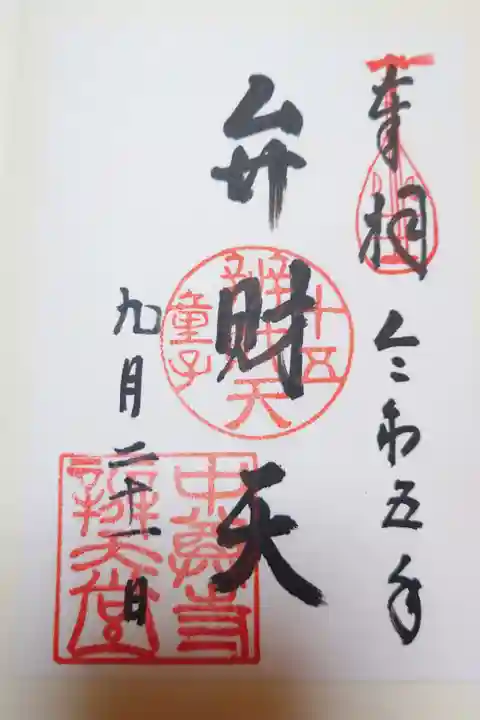 奉拝
令和五年
弁財天
九月二十一日
十五
辨天
童子
中尊寺
辨天堂